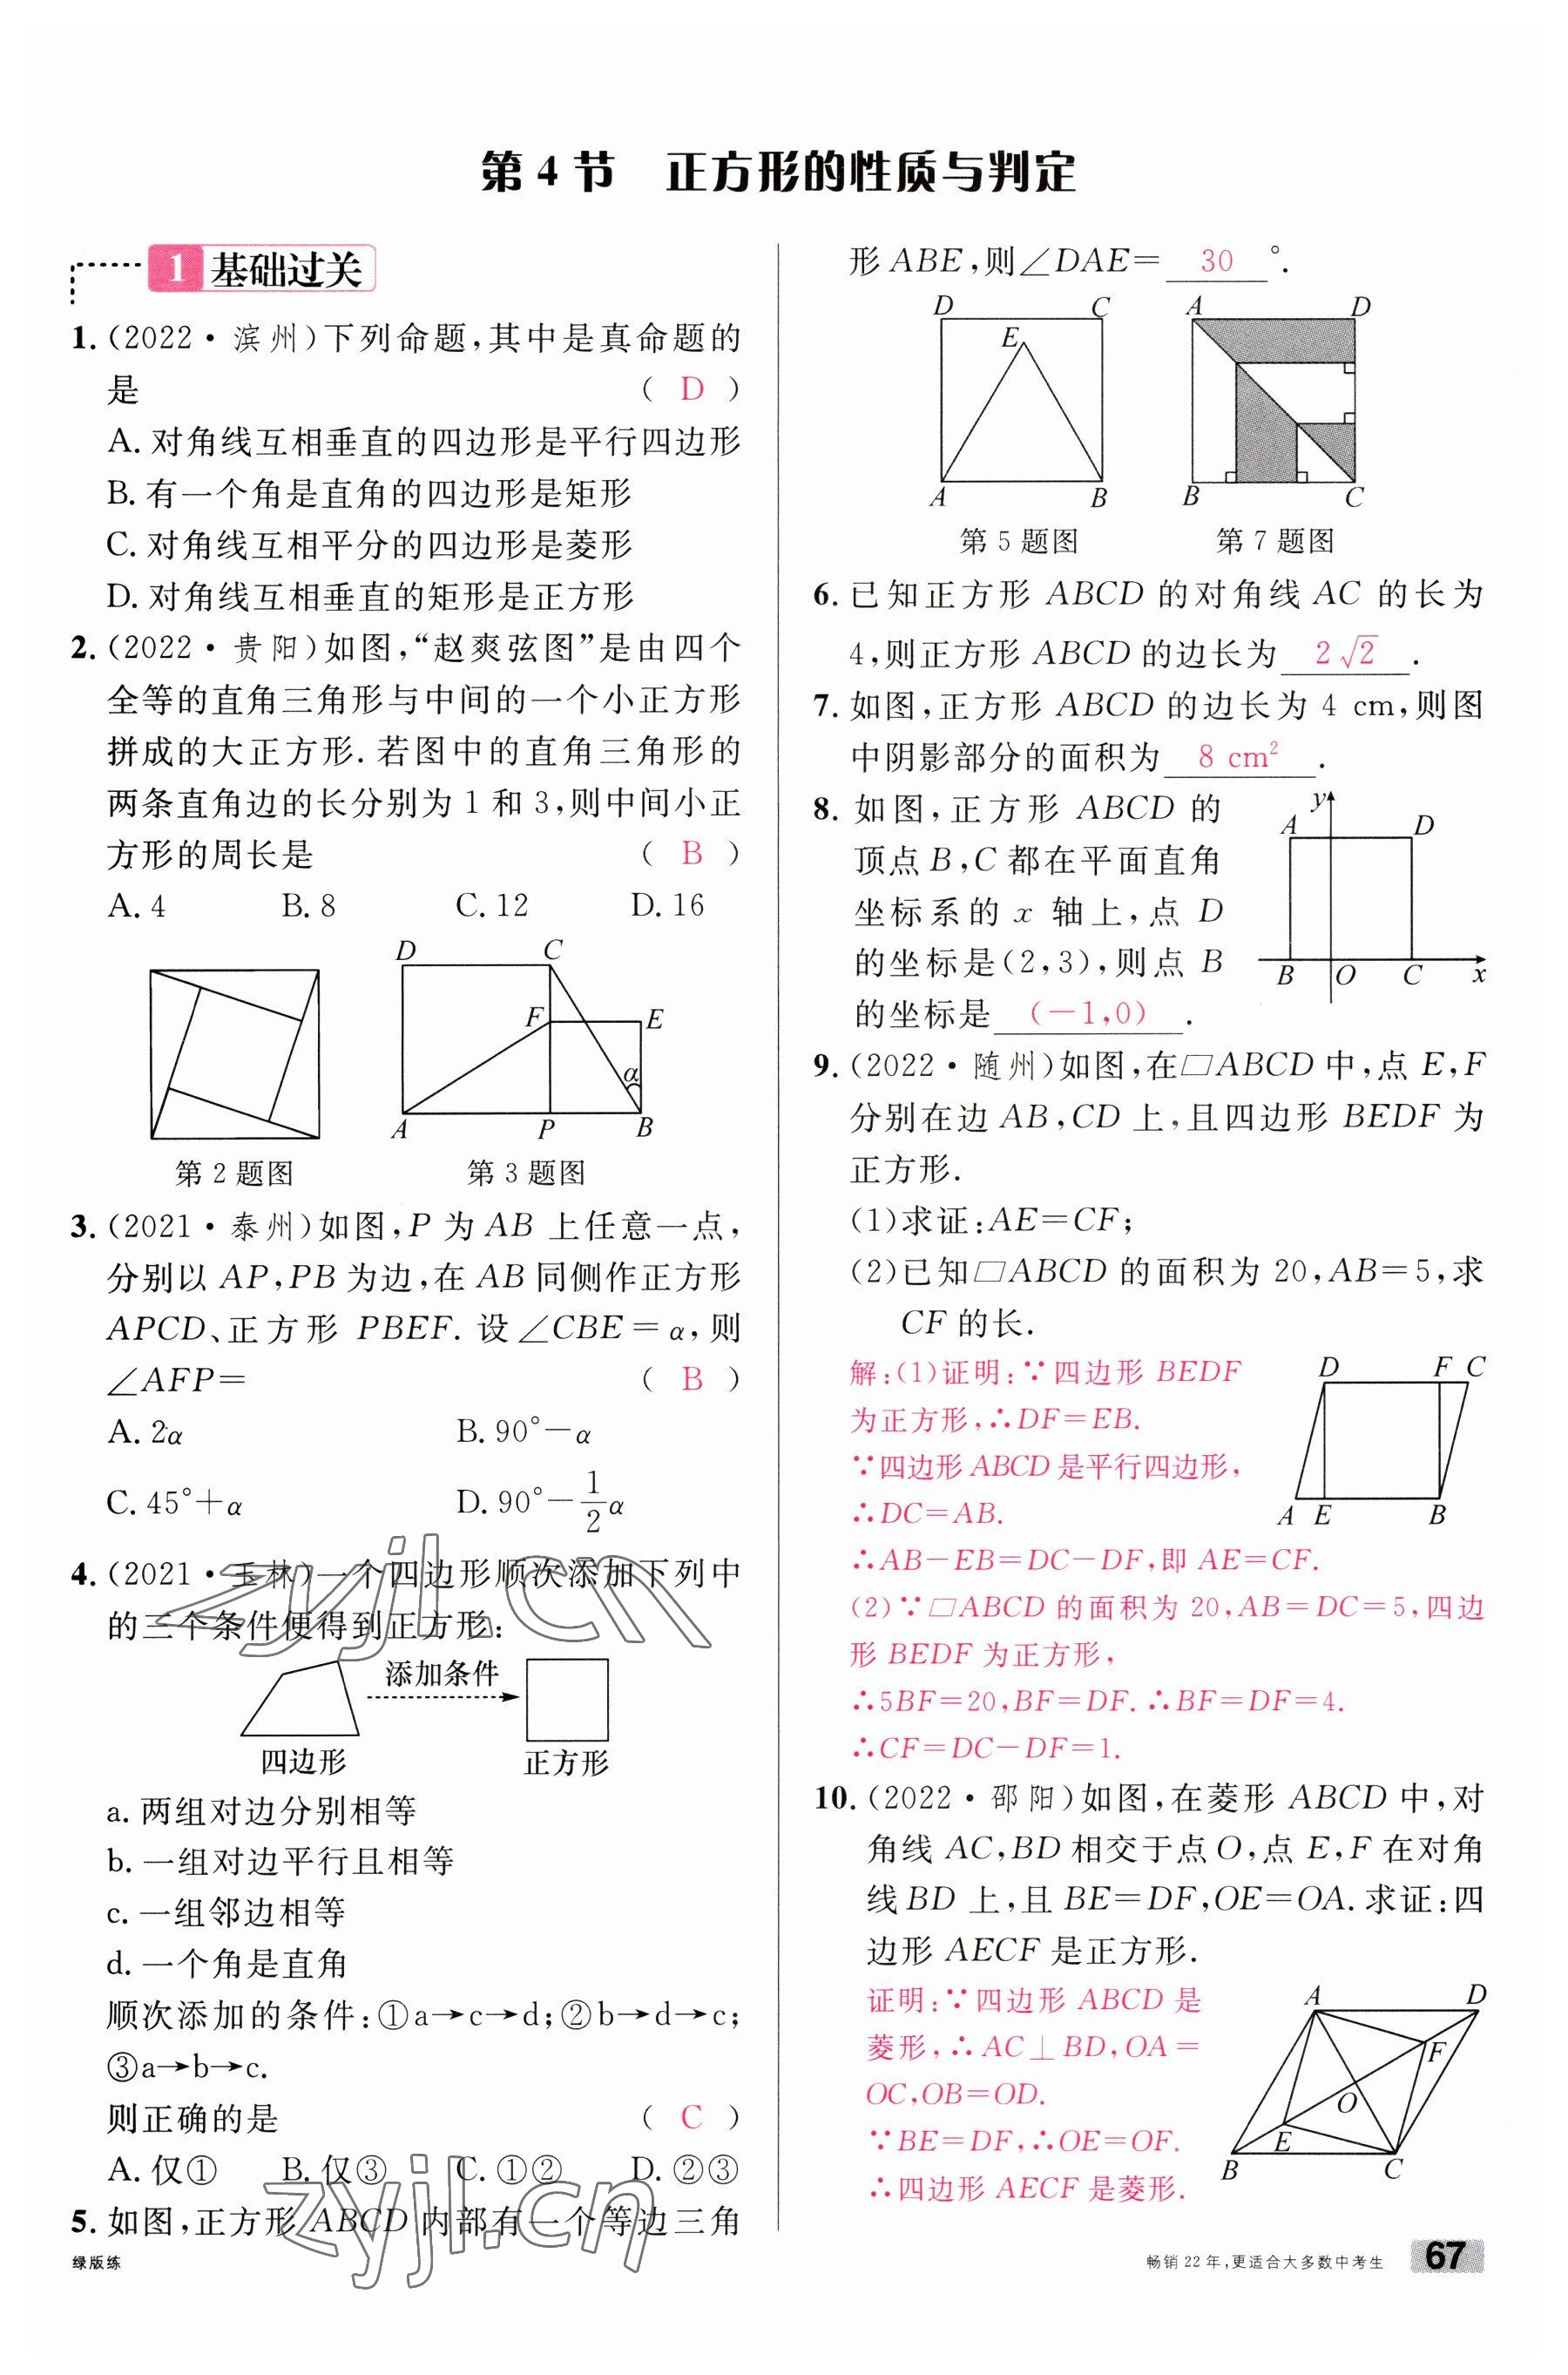 第4节 正方形的性质与判定
1 基础过关
1.(2022·滨州)下列命题,其中是真命题的
是 ( D )
A.对角线互相垂直的四边形是平行四边形
B.有一个角是直角的四边形是矩形
C.对角线互相平分的四边形是菱形
D.对角线互相垂直的矩形是正方形
2.(2022·贵阳)如图,“赵爽弦图”是由四个
全等的直角三角形与中间的一个小正方形
拼成的大正方形.若图中的直角三角形的
两条直角边的长分别为1和3,则中间小正
方形的周长是 ( B )
A.4 B.8 C.12 D.16
D C
F E
α
A P B
第2题图 第3题图
3.(2021·泰州)如图,P为AB上任意一点,
分别以AP,PB为边,在AB同侧作正方形
APCD、正方形PBEF.设∠CBE=α,则
∠AFP= ( B )
A.2α B.90°-α
C.45°+α D.90°-1/2α
4.(2021·玉林)一个四边形顺次添加下列中
的三个条件便得到正方形:
添加条件
四边形 正方形
a.两组对边分别相等
b.一组对边平行且相等
c.一组邻边相等
d.一个角是直角
顺次添加的条件:①a→c→d;②b→d→c;
③a→b→c.
则正确的是 ( C )
A.仅① B.仅③ C.①② D.②③
5.如图,正方形ABCD内部有一个等边三角
绿版练
zyjl.cn
zyjl.cn
形ABE,则∠DAE= 30 °.
D C A D
E
A B B C
第5题图 第7题图
6.已知正方形ABCD的对角线AC的长为
4,则正方形ABCD的边长为 2√2 .
7.如图,正方形ABCD的边长为4 cm,则图
中阴影部分的面积为 8 cm² .
8.如图,正方形ABCD的
顶点B,C都在平面直角
坐标系的x轴上,点D
的坐标是(2,3),则点B
的坐标是 (-1,0) .
y
A D
B O C x
9.(2022·随州)如图,在▱ABCD中,点E,F
分别在边AB,CD上,且四边形BEDF为
正方形.
(1)求证:AE=CF;
(2)已知▱ABCD的面积为20,AB=5,求
CF的长.
解:(1)证明:∵四边形BEDF
为正方形,∴DF=EB.
∵四边形ABCD是平行四边形,
∴DC=AB.
∴AB-EB=DC-DF,即AE=CF.
D F C
A E B
(2)∵▱ABCD的面积为20,AB=DC=5,四边
形BEDF为正方形,
∴5BF=20,BF=DF.∴BF=DF=4.
∴CF=DC-DF=1.
10.(2022·邵阳)如图,在菱形ABCD中,对
角线AC,BD相交于点O,点E,F在对角
线BD上,且BE=DF,OE=OA.求证:四
边形AECF是正方形.
证明:∵四边形ABCD是
菱形,∴AC⊥BD,OA=
OC,OB=OD.
∵BE=DF,∴OE=OF.
∴四边形AECF是菱形.
A D
F
O
E
B C
畅销22年,更适合大多数中考生 67